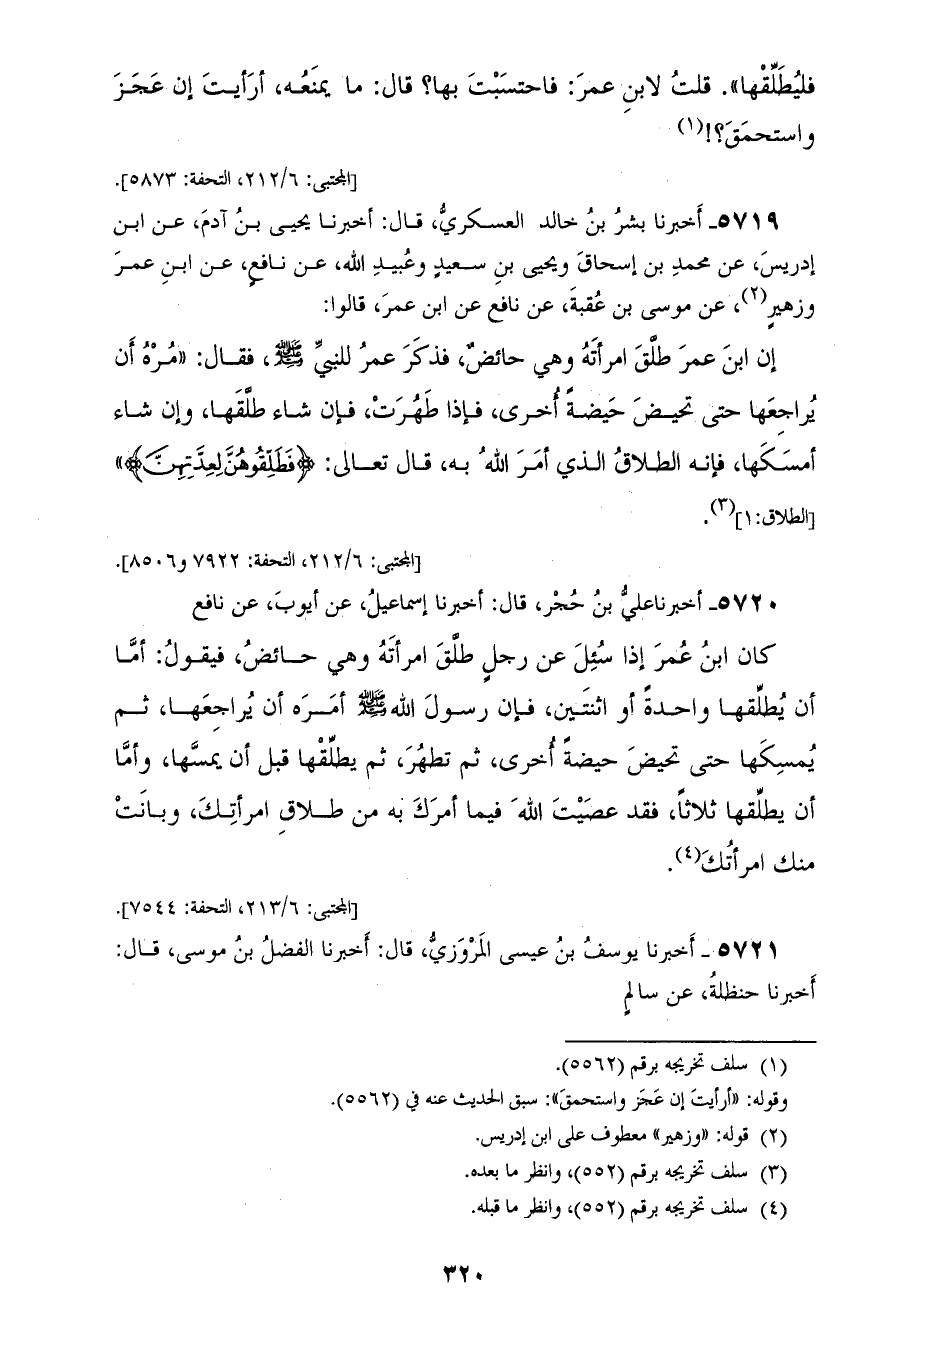 فليُطَلِّقْها». قلتُ لابنِ عمرَ: فاحتسَبْتَ بها؟ قال: ما يمنَعُه، أرَأيتَ إن عَجَزَ
واستحمَقَ؟!(١)
[المجتبى: ٢١٢/٦، التحفة: ٥٨٧٣].
٥٧١٩ـ أَخبرنا بشرُ بنُ خالد العسكريُّ، قال: أخبرنا يحيى بنُ آدمَ، عن ابن
إدريسَ، عن محمدِ بن إسحاقَ ويحيى بنِ سعيدٍ وعُبيدِ الله، عن نافعٍ، عن ابنِ عمرَ
وزهيرٍ(٢)، عن موسى بن عُقبةَ، عن نافع عن ابن عمرَ، قالوا:
إن ابنَ عمرَ طلَّقَ امرأتَهُ وهي حائضٌ، فذكَرَ عمرُ للنبيِّ ﷺ، فقال: «مُرْهُ أَن
يُراجِعَها حتى تحيضَ حَيضةً أُخرى، فإذا طَهُرَتْ، فإن شاء طلَّقَها، وإن شاء
أمسَكَها، فإنه الطلاقُ الذي أمَرَ اللهُ به، قال تعالى: ﴿فَطَلِّقُوهُنَّ لِعِدَّتِهِنَّ﴾»
[الطلاق:١](٣).
[المجتبى: ٢١٢/٦، التحفة: ٧٩٢٢ و٨٥٠٦].
٥٧٢٠ـ أخبرناعليُّ بنُ حُجْر، قال: أخبرنا إسماعيلُ، عن أيوبَ، عن نافع
كان ابنُ عُمرَ إذا سُئِلَ عن رجلٍ طلَّقَ امرأتَهُ وهي حائضُ، فيقولُ: أمَّا
أن يُطلِّقها واحدةً أو اثنتَين، فإن رسولَ الله ﷺ أمَرَه أن يُراجِعَها، ثم
يُمسِكَها حتى تحيضَ حيضةً أُخرى، ثم تطهُرَ، ثم يطلِّقْها قبل أن يمسَّها، وأمَّا
أن يطلِّقها ثلاثاً، فقد عصيْتَ اللهَ فيما أمرَكَ به من طلاقِ امرأتِكَ، وبانَتْ
منك امرأتُكَ(٤).
[المجتبى: ٢١٣/٦، التحفة: ٧٥٤٤].
٥٧٢١ ـ أَخبرنا يوسفُ بنُ عيسى المَرْوَزيُّ، قال: أَخبرنا الفضلُ بنُ موسى، قال:
أَخبرنا حنظلةُ، عن سالمٍ
(١) سلف تخريجه برقم (٥٥٦٢).
وقوله: «أرأيتَ إن عَجَز واستحمقَ»: سبق الحديث عنه في (٥٥٦٢).
(٢) قوله: «وزهير» معطوف على ابن إدريس.
(٣) سلف تخريجه برقم (٥٥٢)، وانظر ما بعده.
(٤) سلف تخريجه برقم (٥٥٢)، وانظر ما قبله.
٣٢٠